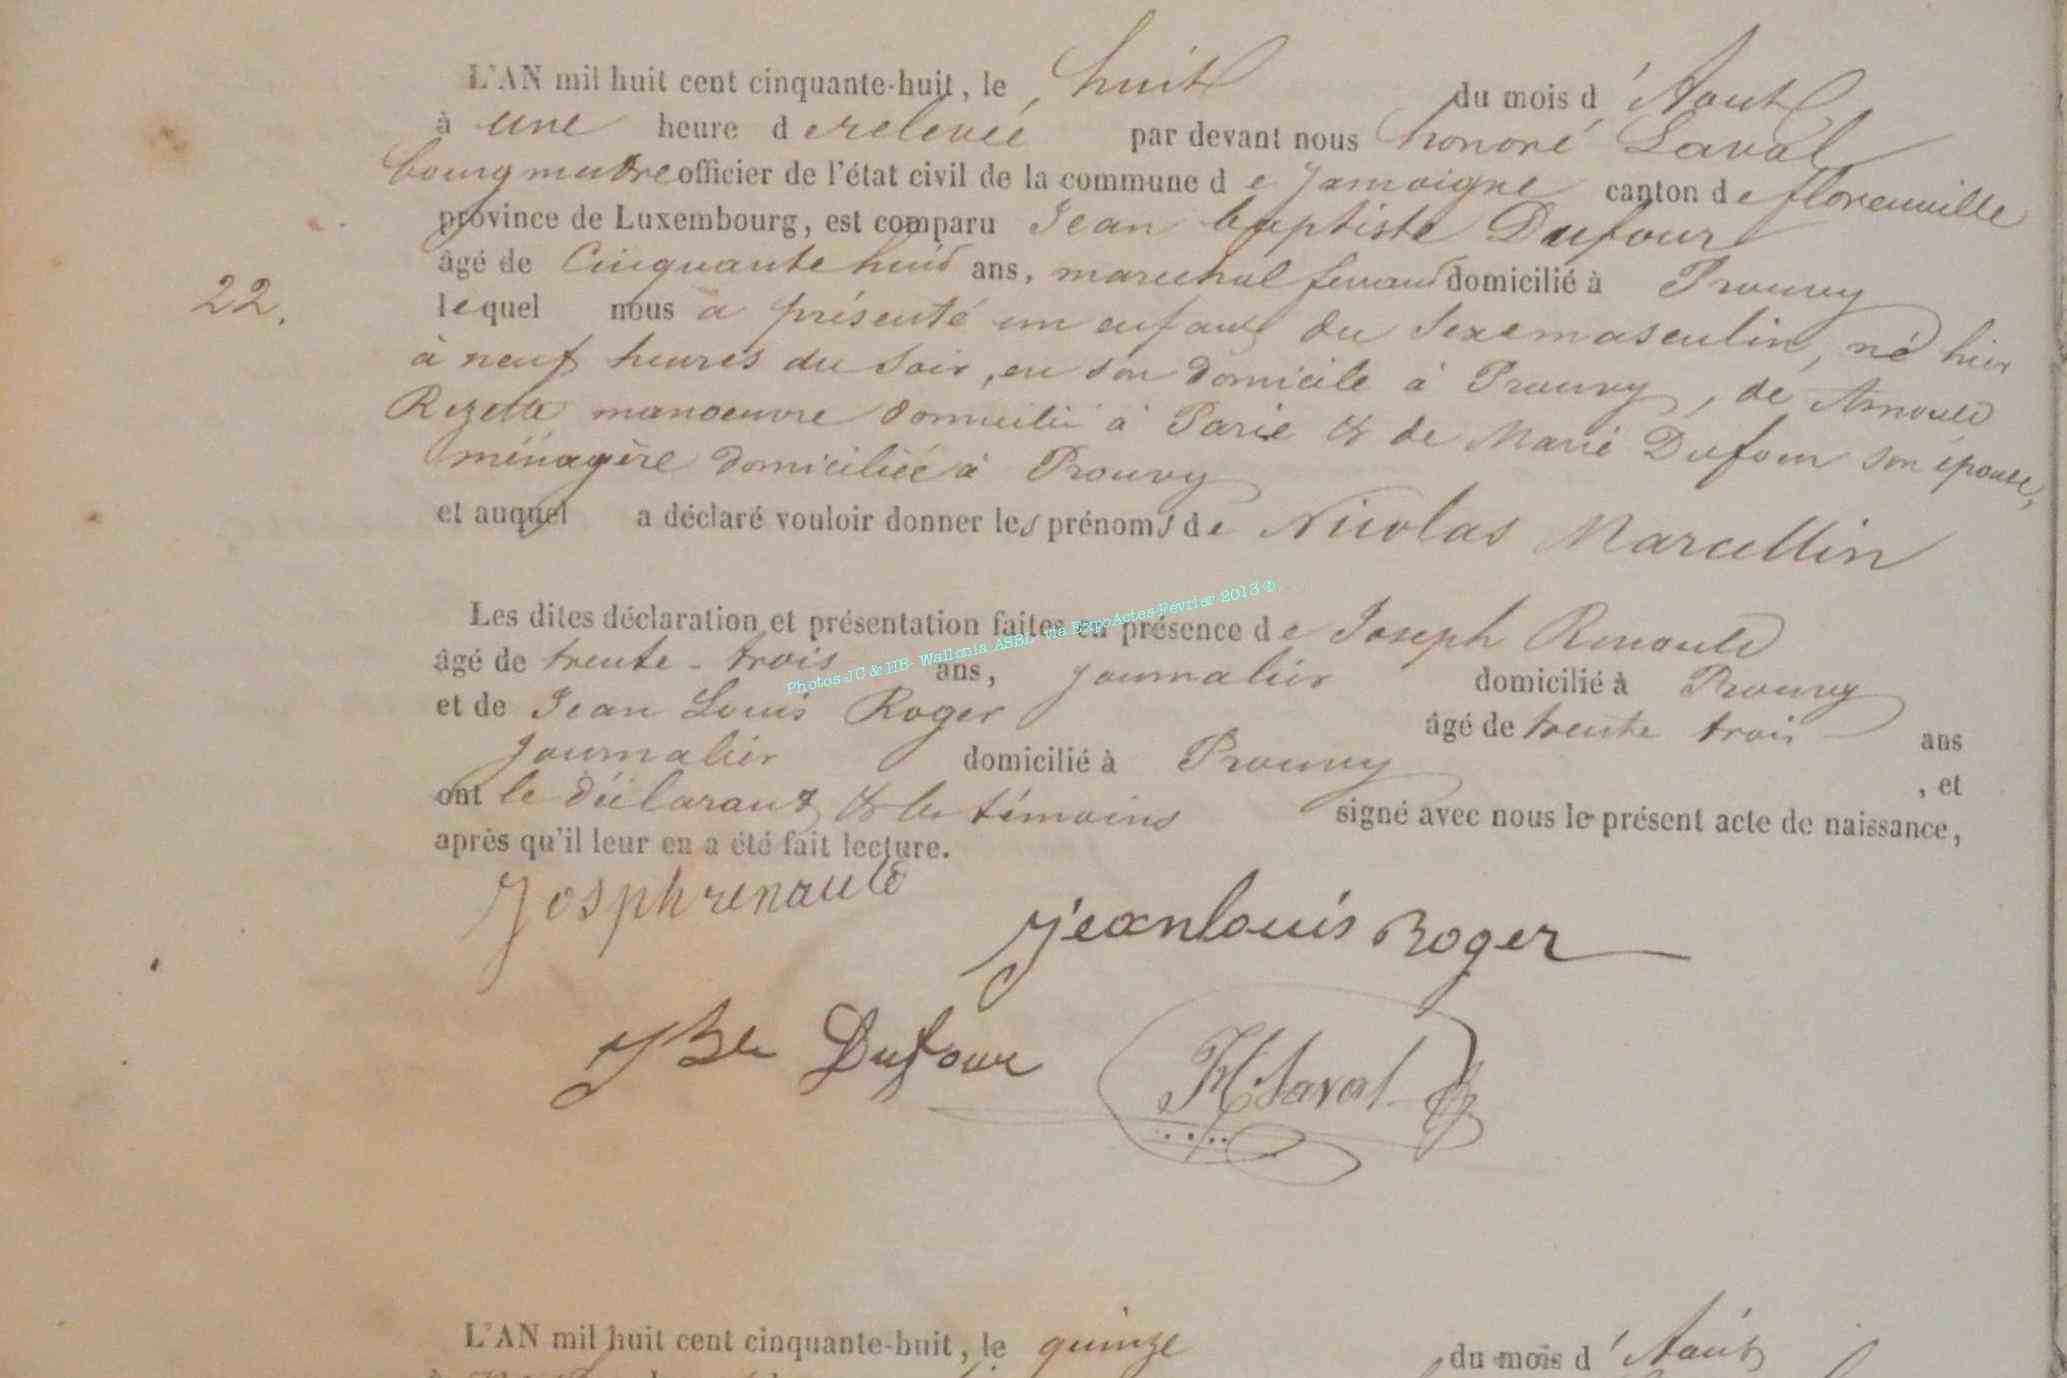 L'AN mil huit cent cinquante-huit, le huit du mois d'Aout
à une heure de relevée par devant nous honoré Laval
bourgmestre officier de l'état civil de la commune de Jamoigne canton de florenville
province de Luxembourg, est comparu Jean baptiste Dufour
âgé de Cinquante huit ans, marechal ferrant domicilié à Prouvy
22.
lequel nous a présenté un enfant du Sexe masculin, né hier
à neuf heures du Soir, en son domicile à Prouvy, de Arnould
Rezette manoeuvre domicilié à Paris & de Marie Dufour son épouse,
ménagère domiciliée à Prouvy
et auquel a déclaré vouloir donner les prénoms de Nicolas Marcellin
Les dites déclaration et présentation faites en présence de Joseph Renauld
Photos JC & HB- Wallonia ASBL via ExpoActes-Février 2013 ©
âgé de trente-trois ans, journalier domicilié à Prouvy
et de Jean Louis Roger âgé de trente trois ans
journalier domicilié à Prouvy , et
ont le déclarant & les témoins signé avec nous le présent acte de naissance,
après qu'il leur en a été fait lecture.
Josphrenauld
jeanlouis Roger
JBte Dufour
H Laval
L'AN mil huit cent cinquante-huit, le quinze du mois d'Août